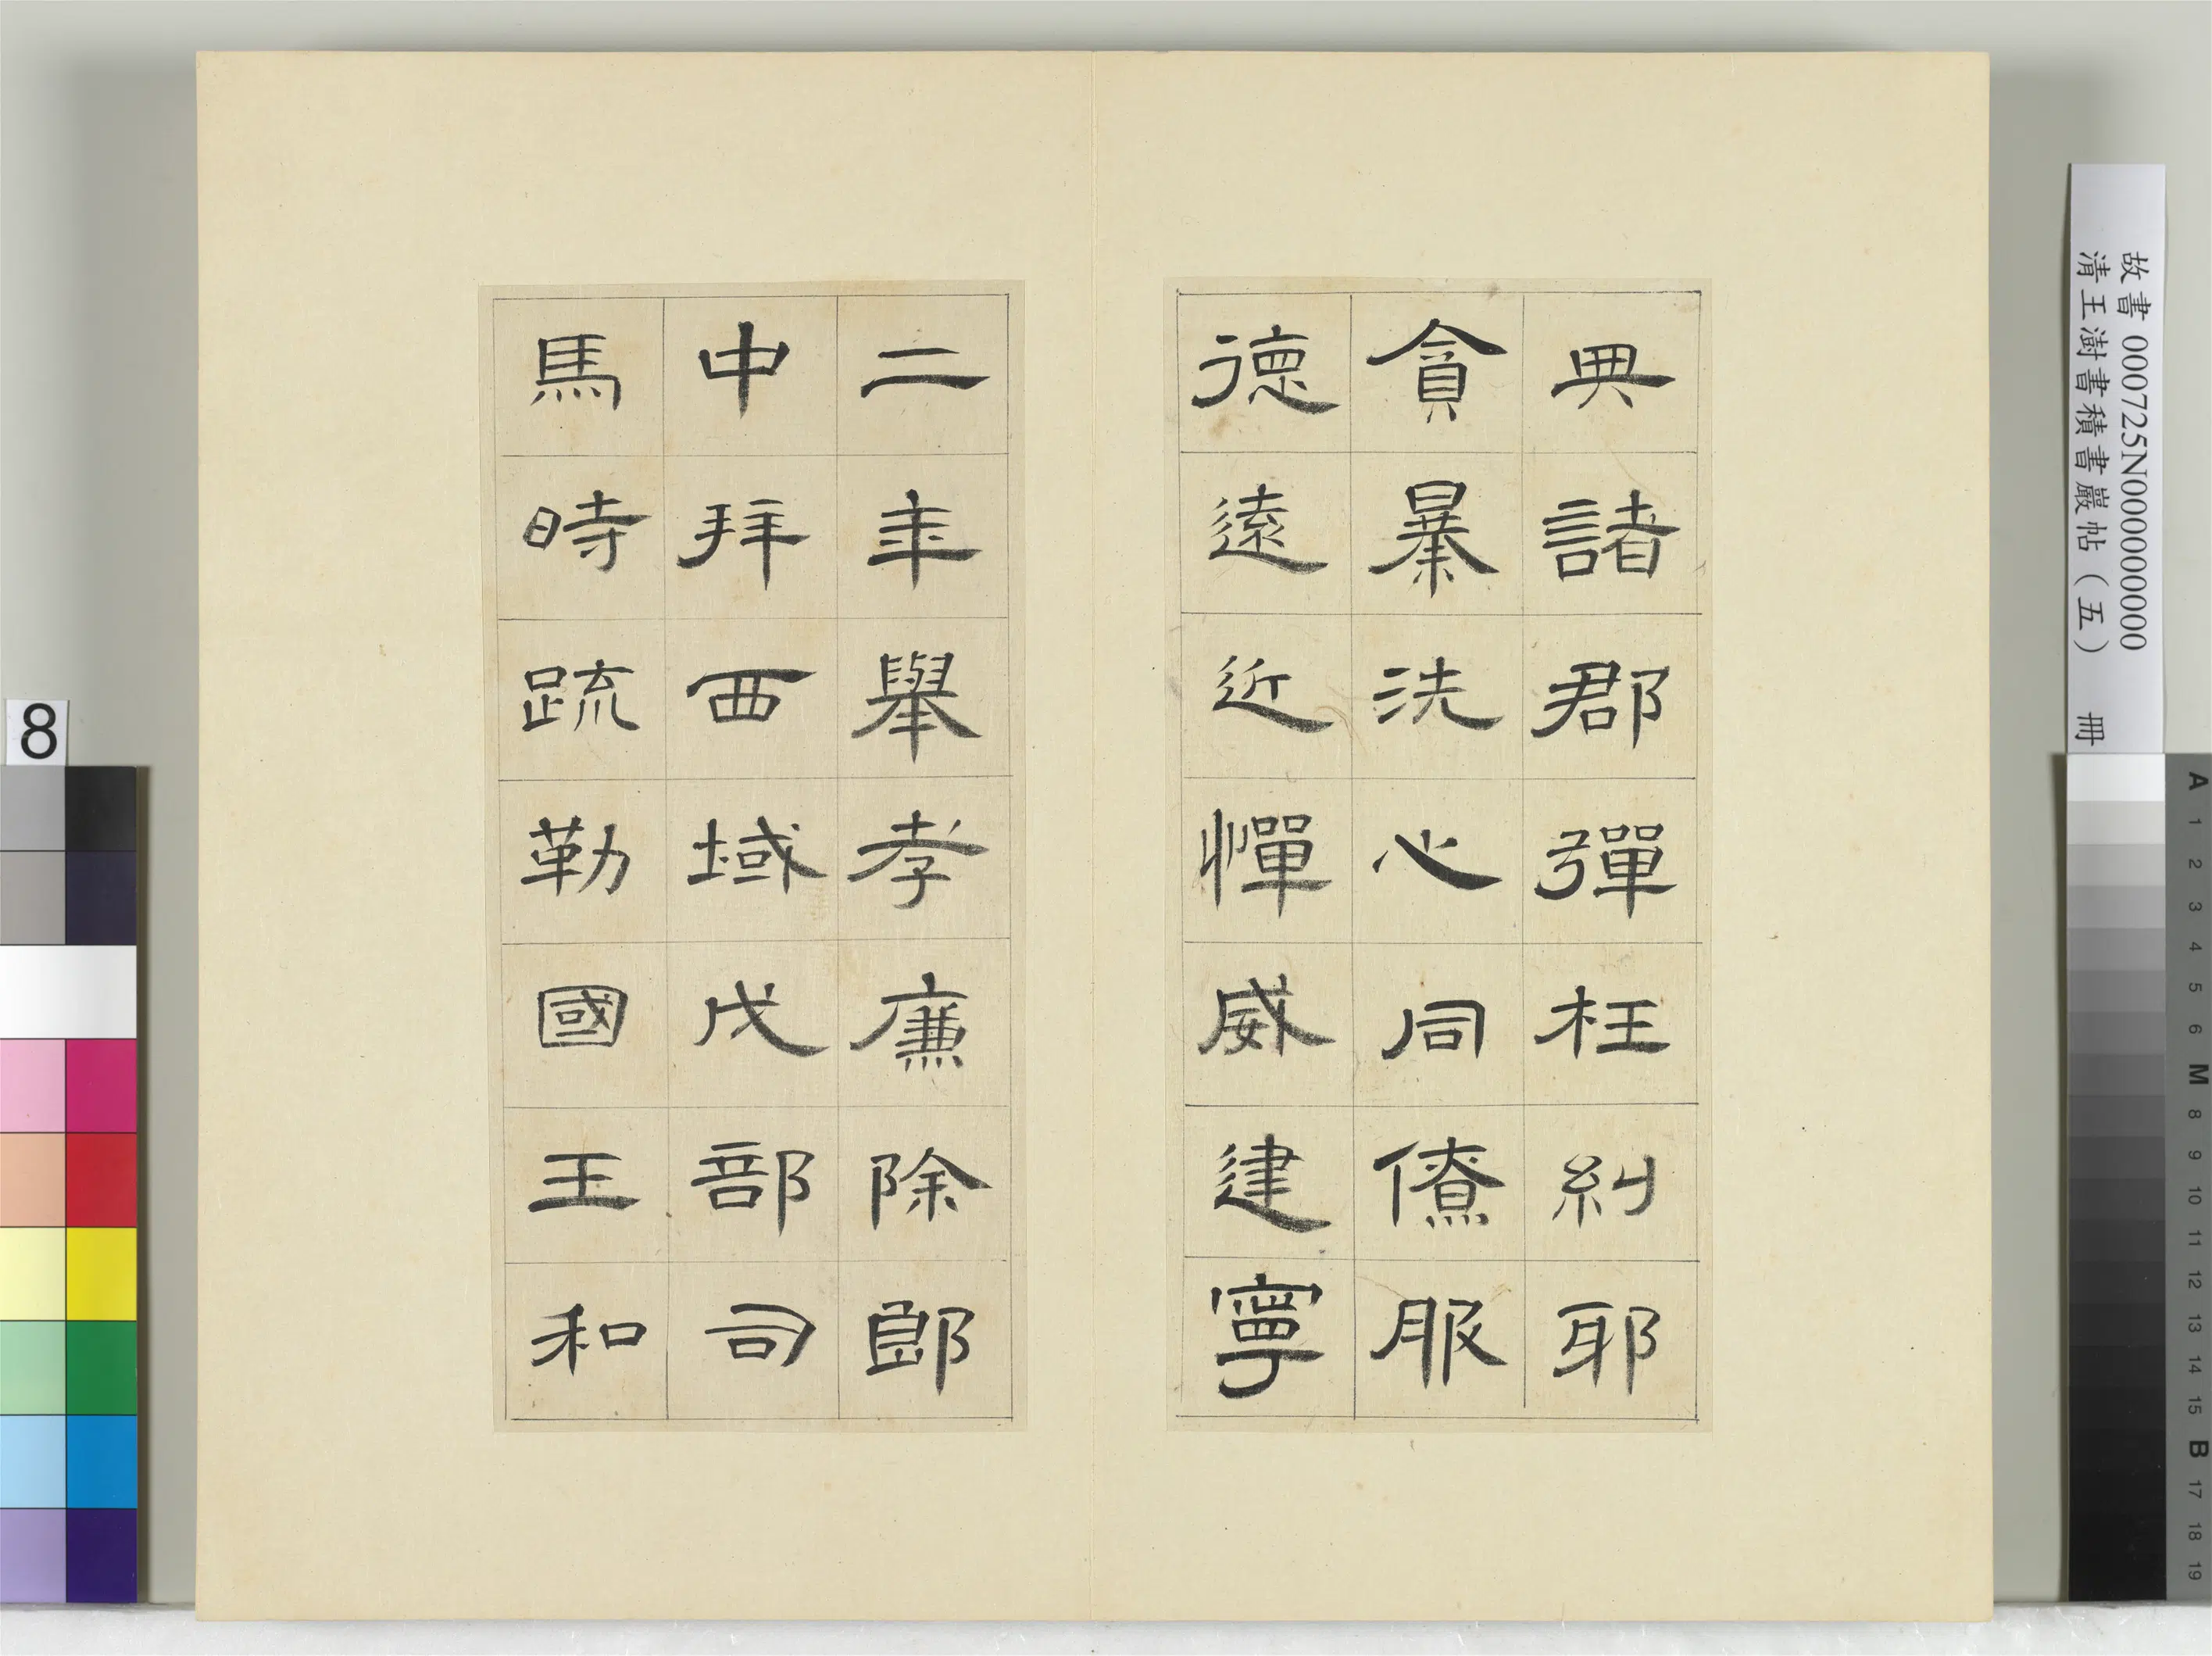 典諸郡彈枉糾耶
貪暴洗心同僚服
德遠近憚威建寧
二年舉孝廉除郎
中拜西域戊部司
馬時疏勒國王和
故書 000725N000000000
清王澍書積書巖帖（五） 冊
8
A 1 2 3 4 5 6 M 8 9 10 11 12 13 14 15 B 17 18 19